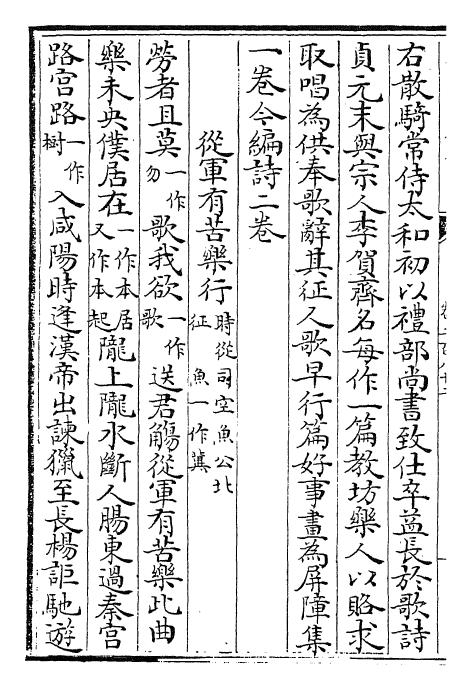 右散騎常侍太和初以禮部尚書致仕卒益長於歌詩
貞元末與宗人李賀齊名每作一篇教坊樂人以賂求
取唱為供奉歌辭其征人歌早行篇好事畫為屏障集
一卷今編詩二卷
從軍有苦樂行時從司空魚公北征魚一作冀
勞者且莫一作勿歌我欲一作歌送君觴從軍有苦樂此曲
樂未央僕居在一作本居又作本起隴上隴水斷人腸東過秦宮
路宮路一作樹入咸陽時逢漢帝出諫獵至長楊詎馳遊